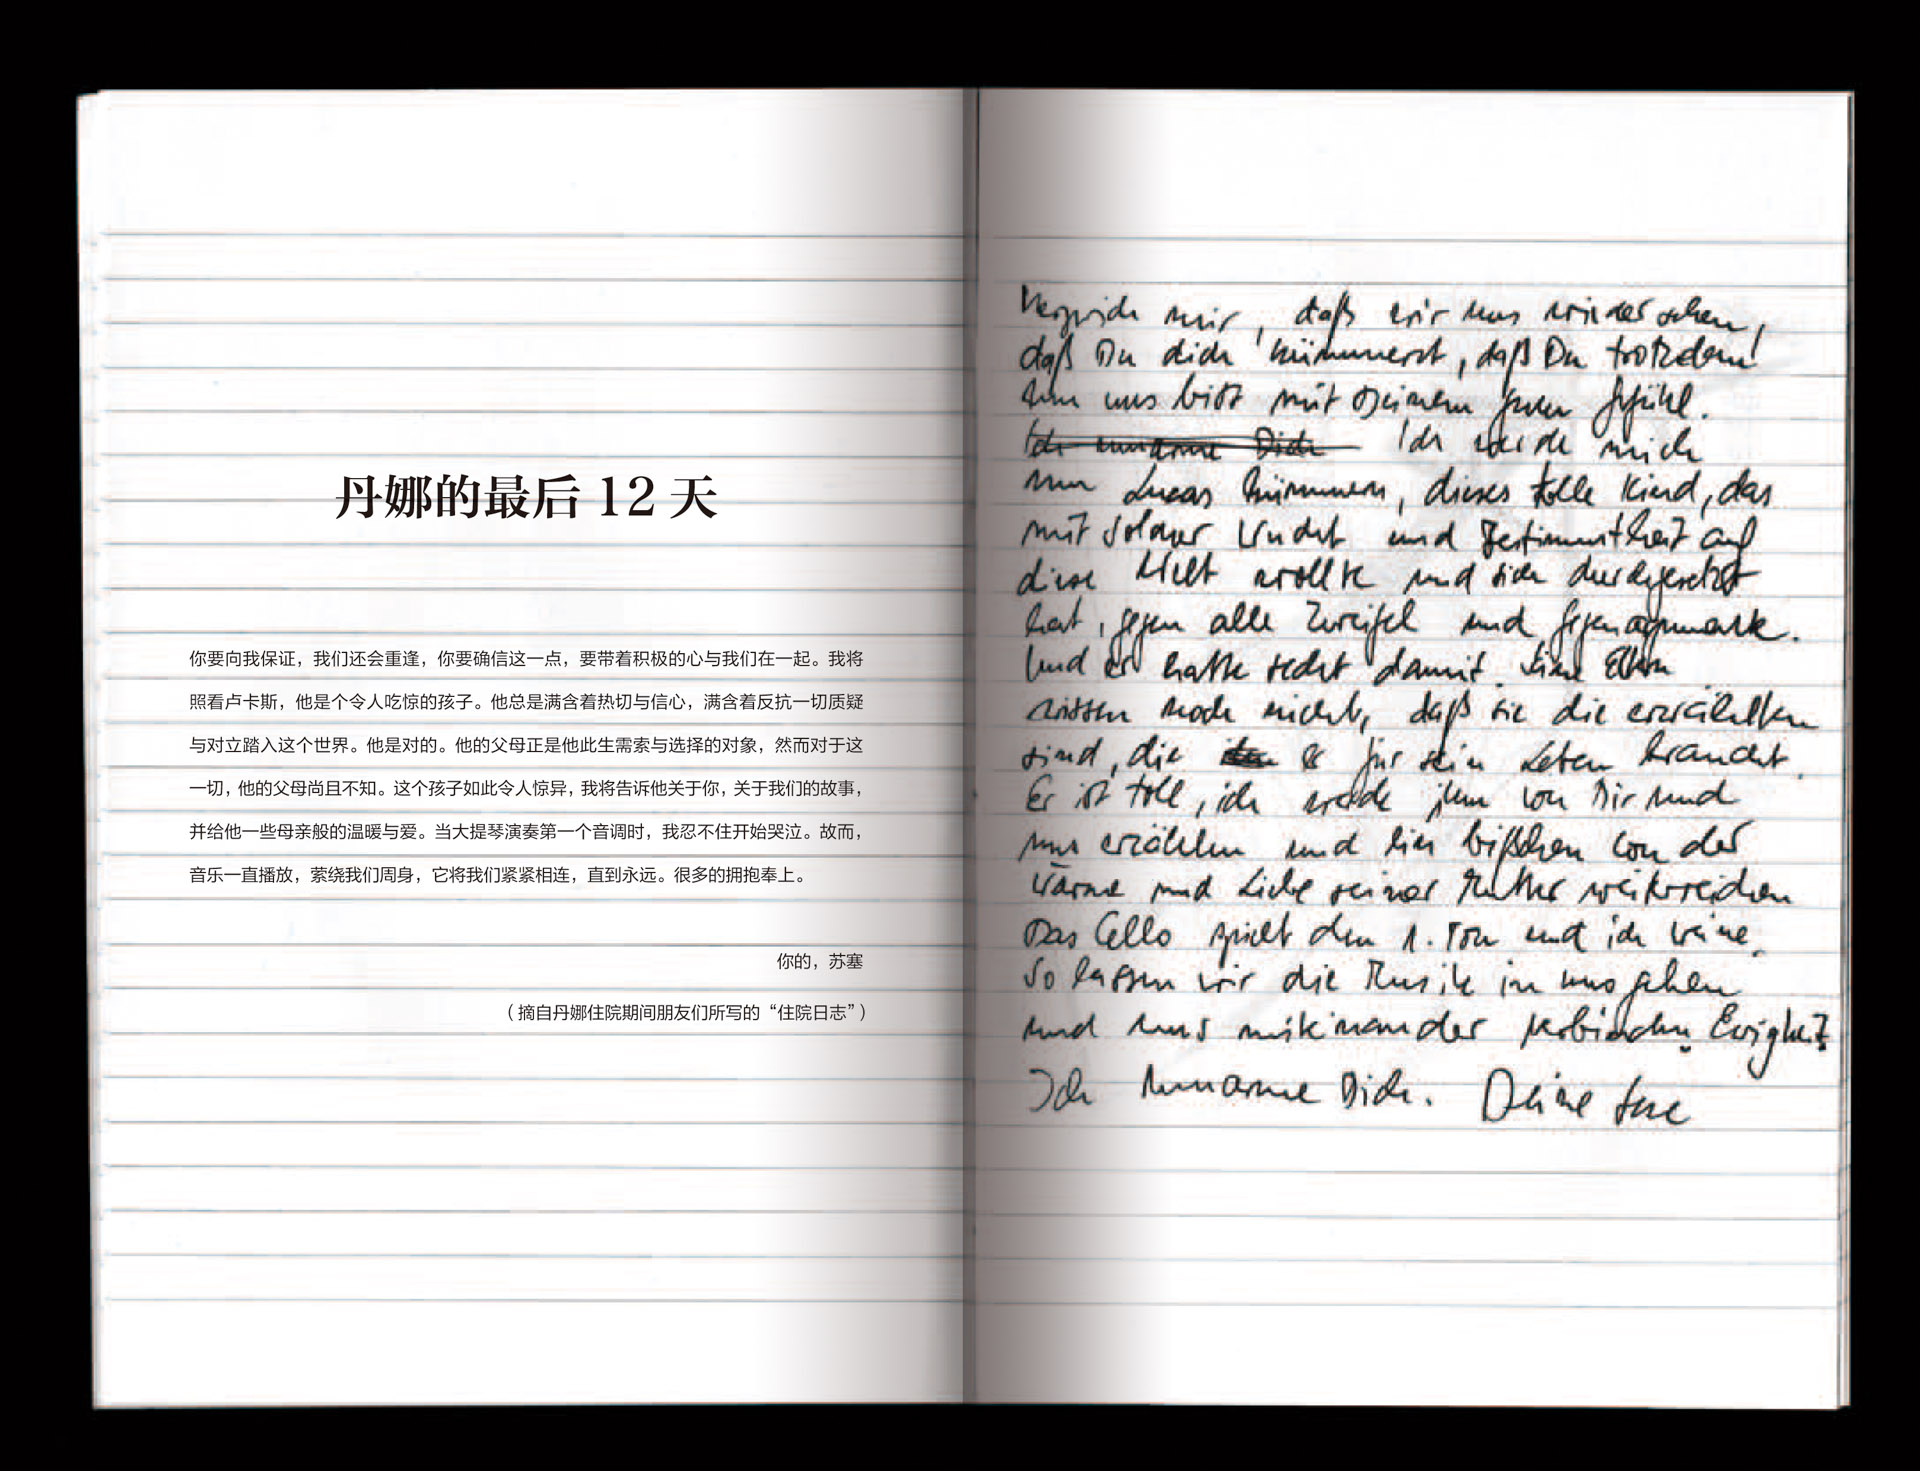 丹娜的最后 12 天
你要向我保证，我们还会重逢，你要确信这一点，要带着积极的心与我们在一起。我将
照看卢卡斯，他是个令人吃惊的孩子。他总是满含着热切与信心，满含着反抗一切质疑
与对立踏入这个世界。他是对的。他的父母正是他此生需索与选择的对象，然而对于这
一切，他的父母尚且不知。这个孩子如此令人惊异，我将告诉他关于你，关于我们的故事，
并给他一些母亲般的温暖与爱。当大提琴演奏第一个音调时，我忍不住开始哭泣。故而，
音乐一直播放，萦绕我们周身，它将我们紧紧相连，直到永远。很多的拥抱奉上。
你的，苏塞
（摘自丹娜住院期间朋友们所写的“住院日志”）
mir, daß wir uns wiedersehen,
daß Du dich kümmerst, daß Du trotzdem
um uns bist mit Deinem guten Gefühl.
Ich umarme Dich Ich werde mich
um Lucas kümmern, dieses tolle Kind, das
mit solcher Wucht und Bestimmtheit auf
diese Welt wollte und sich durchgesetzt
hat, gegen alle Zweifel und
Und er hatte recht damit. Seine Eltern
wissen noch nicht, daß sie die erwählten
sind, die er für sein Leben braucht.
Er ist toll, ich werde ihm von Dir und
uns erzählen und ein bißchen von der
Wärme und Liebe seiner Mutter weiterreichen
Das Cello spielt den 1. Ton und ich weine.
So lassen wir die Musik in uns gehen
und uns miteinander verbinden. Ewigkeit
Ich umarme Dich. Deine Suse